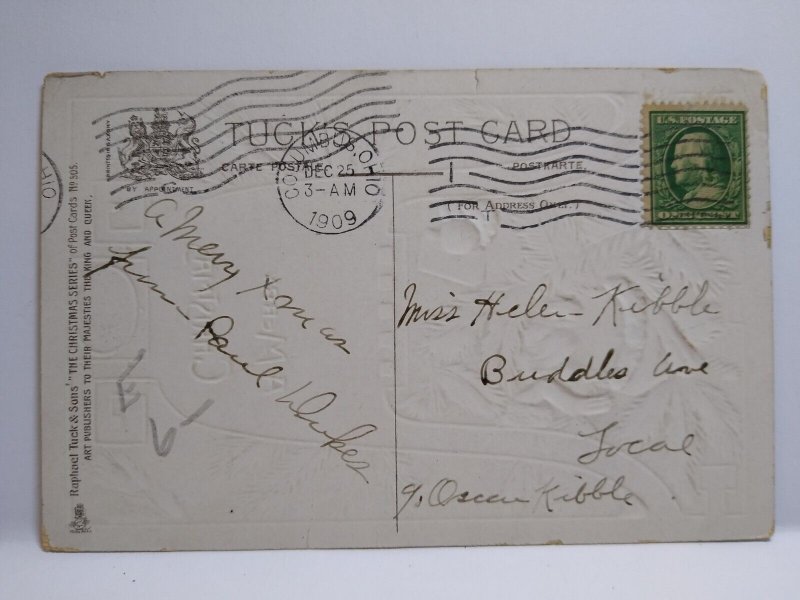 TUCK'S POST CARD
CARTE POSTALE
POSTKARTE.
(FOR ADDRESS ONLY.)
BY APPOINTMENT
COLUMBUS, OHIO
DEC 25
3-AM
1909
OHIO
U.S. POSTAGE
ONE CENT
Raphael Tuck & Sons' "THE CHRISTMAS SERIES" of Post Cards Nº 505.
ART PUBLISHERS TO THEIR MAJESTIES THE KING AND QUEEN.
A Merry Xmas
from Paul
Miss Helen Kibble
Buddles Ave
Local
c/o Oscar Kibble